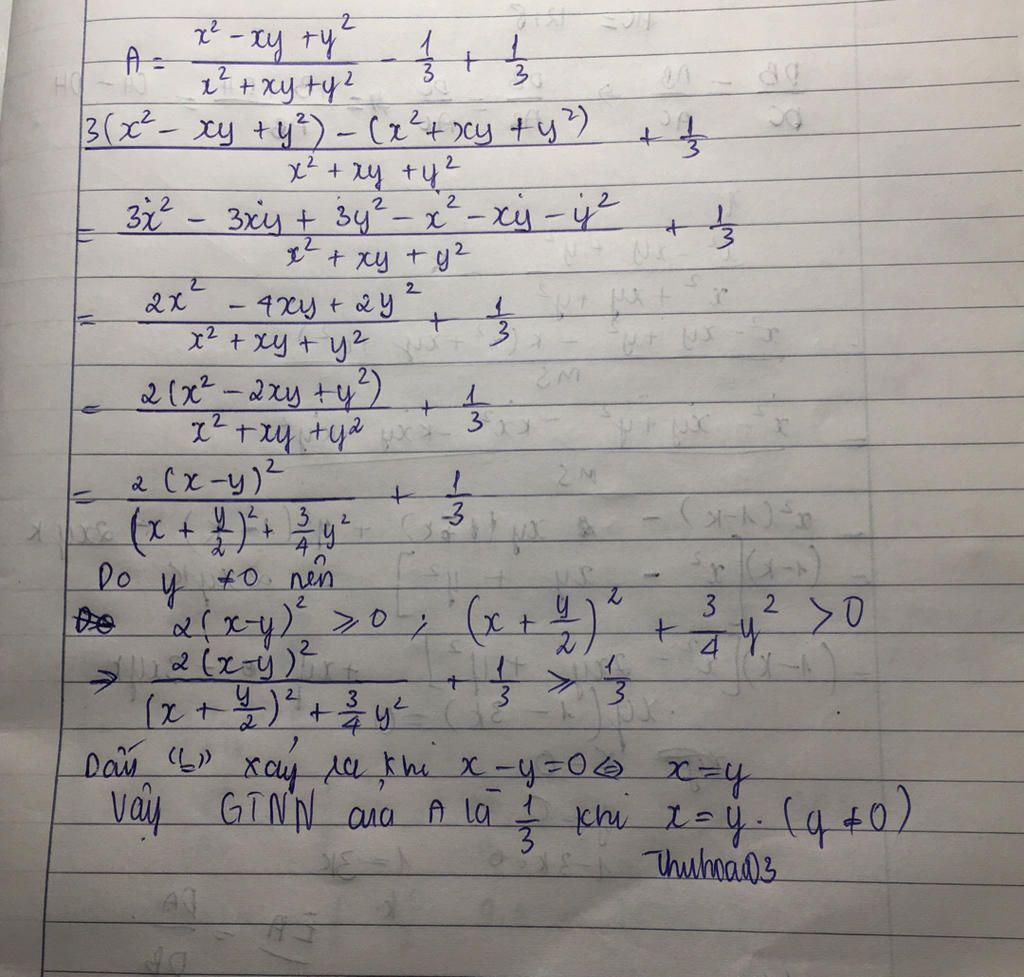 A = \frac{x² - xy + y²}{x² + xy + y²} - \frac{1}{3} + \frac{1}{3}
\frac{3(x² - xy + y²) - (x² + xy + y²)}{x² + xy + y²} + \frac{1}{3}
= \frac{3x² - 3xy + 3y² - x² - xy - y²}{x² + xy + y²} + \frac{1}{3}
= \frac{2x² - 4xy + 2y²}{x² + xy + y²} + \frac{1}{3}
= \frac{2(x² - 2xy + y²)}{x² + xy + y²} + \frac{1}{3}
= \frac{2(x-y)²}{(x + \frac{y}{2})² + \frac{3}{4}y²} + \frac{1}{3}
Do y ≠ 0 nên
2(x-y)² ⩾ 0 ; (x + \frac{y}{2})² + \frac{3}{4}y² > 0
⇒ \frac{2(x-y)²}{(x + \frac{y}{2})² + \frac{3}{4}y²} + \frac{1}{3} ⩾ \frac{1}{3}
Dấu "=" xảy ra khi x - y = 0 ⇔ x = y
Vậy GTNN của A là \frac{1}{3} khi x = y. (y ≠ 0)